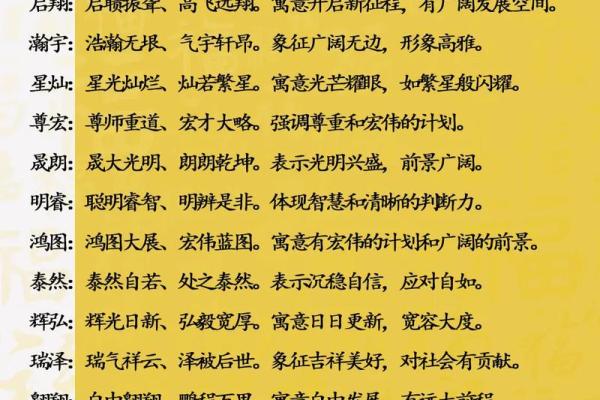 启翔：启聩振聋、高飞远翔。寓意开启新征程，有广阔发展空间。
瀚宇：浩瀚无垠、气宇轩昂。象征广阔无边，形象高雅。
星灿：星光灿烂、灿若繁星。寓意光芒耀眼，如繁星般闪耀。
尊宏：尊师重道、宏才大略。强调尊重和宏伟的计划。
晟朗：晟大光明、朗朗乾坤。表示光明兴盛，前景广阔。
明睿：聪明睿智、明辨是非。体现智慧和清晰的判断力。
鸿图：鸿图大展、宏伟蓝图。寓意有宏伟的计划和广阔的前景。
泰然：泰然自若、处之泰然。表示沉稳自信，应对自如。
辉弘：辉光日新、弘毅宽厚。寓意日日更新，宽容大度。
瑞泽：瑞气祥云、泽被后世。象征吉祥美好，对社会有贡献。
翱翔：自由翱翔、鹏程万里。寓意自由发展，有远大前程。